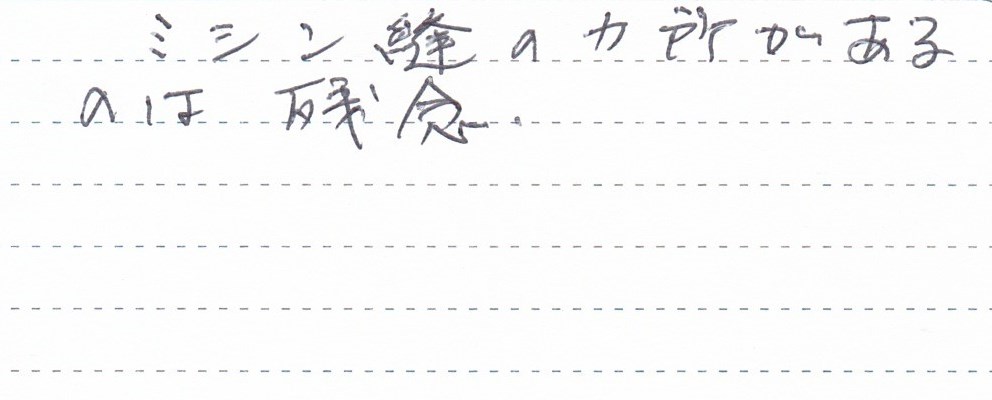 ミシン縫のカ所がある
のは残念.